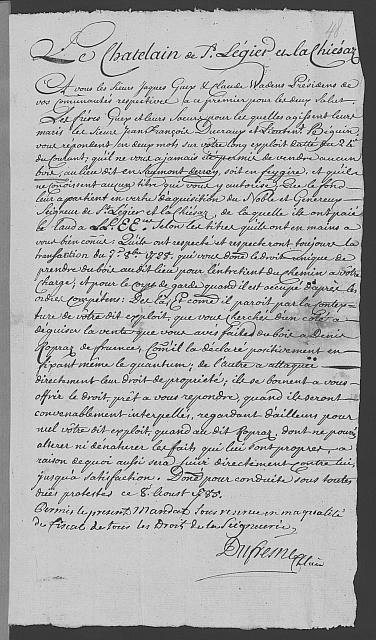 Le Chatelain de St. Légier et la Chiésaz
A vous les Sieurs Jaques Guex & Claude Présidens de
vos Communautés respectives, a ce premier pour les deux Salut.
Les frères Guex et leurs Soeurs pour les quelles agissent leurs
maris les Sieurs Jean François Ducraux et Béguin,
vous répondent en deux mots sur votre long exploit datté du 2e
du Courant, qu'il ne vous a jamais été permis de vendre aucun
bois, au lieu dit en soit en feygire, et qu'ils
ne connoissent aucun titre qui vous y autorise; Que le fond
leur apartient en vertu d'aquisition du Noble et Genereux
Seigneur de St. Légier et la Chiésaz, de laquelle ils ont païé
le laud a LL. EE. Selon les titres qu'ils ont en mains a
vous bien connû. Qu'ils ont respecté et respecteront toujours la
transaction du 1788, qui vous done le droit unique de
prendre du bois au dit lieu pour l'entretient du chemin a votre
Charge, et pour le corps de garde quand il est occupé d'après les
ordres competens; Des là, Et comme il paroit par la contex-
ture de votre dit exploit, que vous cherchés d'un côté a
déguiser la vente que vous avés faites du bois a Denis
Ropraz de fruence, Comme il l'a déclaré positivement en
fixant même le quantum; de l'autre a attaquer
directement leur droit de proprieté, ils se bornent a vous
offrir le droit, prêt a vous repondre, quand ils seront
convenablement interpellés, regardant d'ailleurs pour
nul votre dit exploit, quand au dit Ropraz, dont ne pouvés
alterer ni dénaturer les faits qui lui sont propres, a
raison de quoi aussi sera suivi directement contre lui
jusqu'a satisfaction. Donné pour conduite sous toutes
dues protestes ce 8e Aoust 1788.
Permis le present Mandat sous reserve en ma qualité
de fiscal de tous les Droits de la Seigneurie.
Dufresne